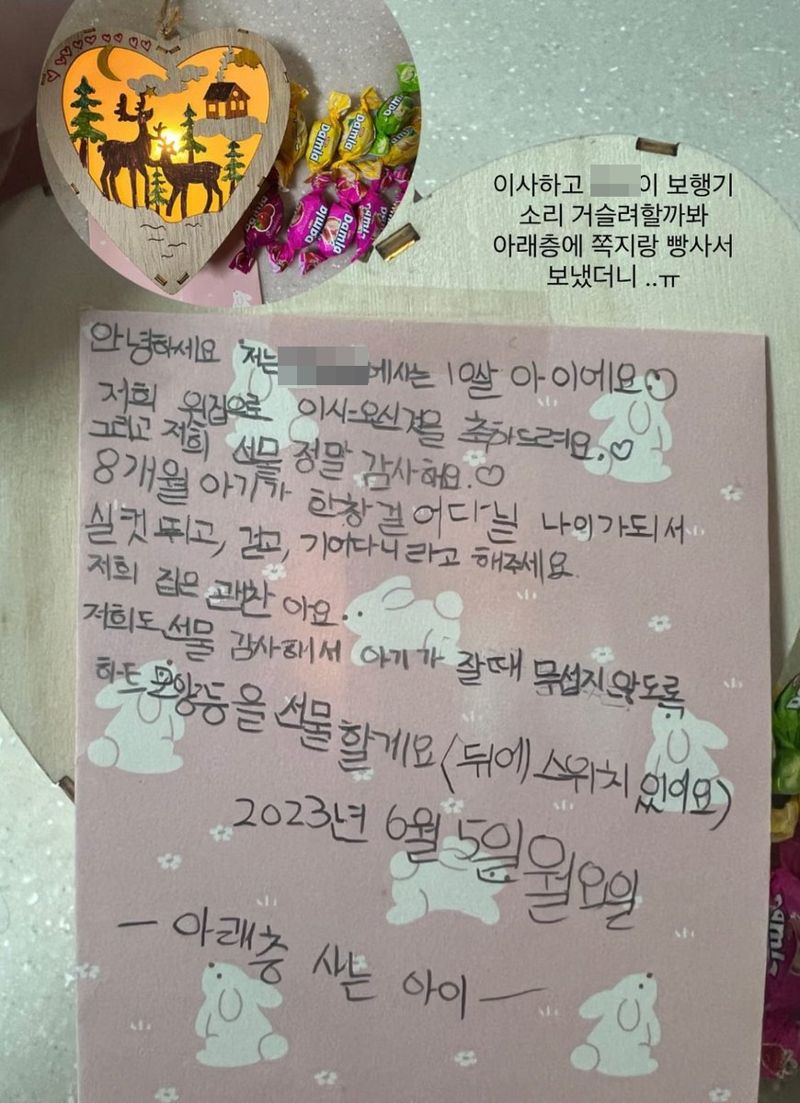 이사하고 이 보행기
소리 거슬려할까봐
아래층에 쪽지랑 빵사서
보냈더니 ..ㅠ
Damla
Damla
Damla
Damla
안녕하세요 저는 에사는 10살 아이에요♡
저희 윗집으로 이사오신것을 축하드려요.♡
그리고 저희 선물 정말 감사해요.♡
8개월 아기가 한창 걸어다닐 나이가되서
실컷 뛰고, 걷고, 기어다니라고 해주세요.
저희 집은 괜찮아요.
저희도 선물 감사해서 아기가 잘때 무섭지않도록
하트모양등을 선물할게요 (뒤에 스위치 있어요)
2023년 6월 5일 월요일
- 아래층 사는 아이 -
Damla